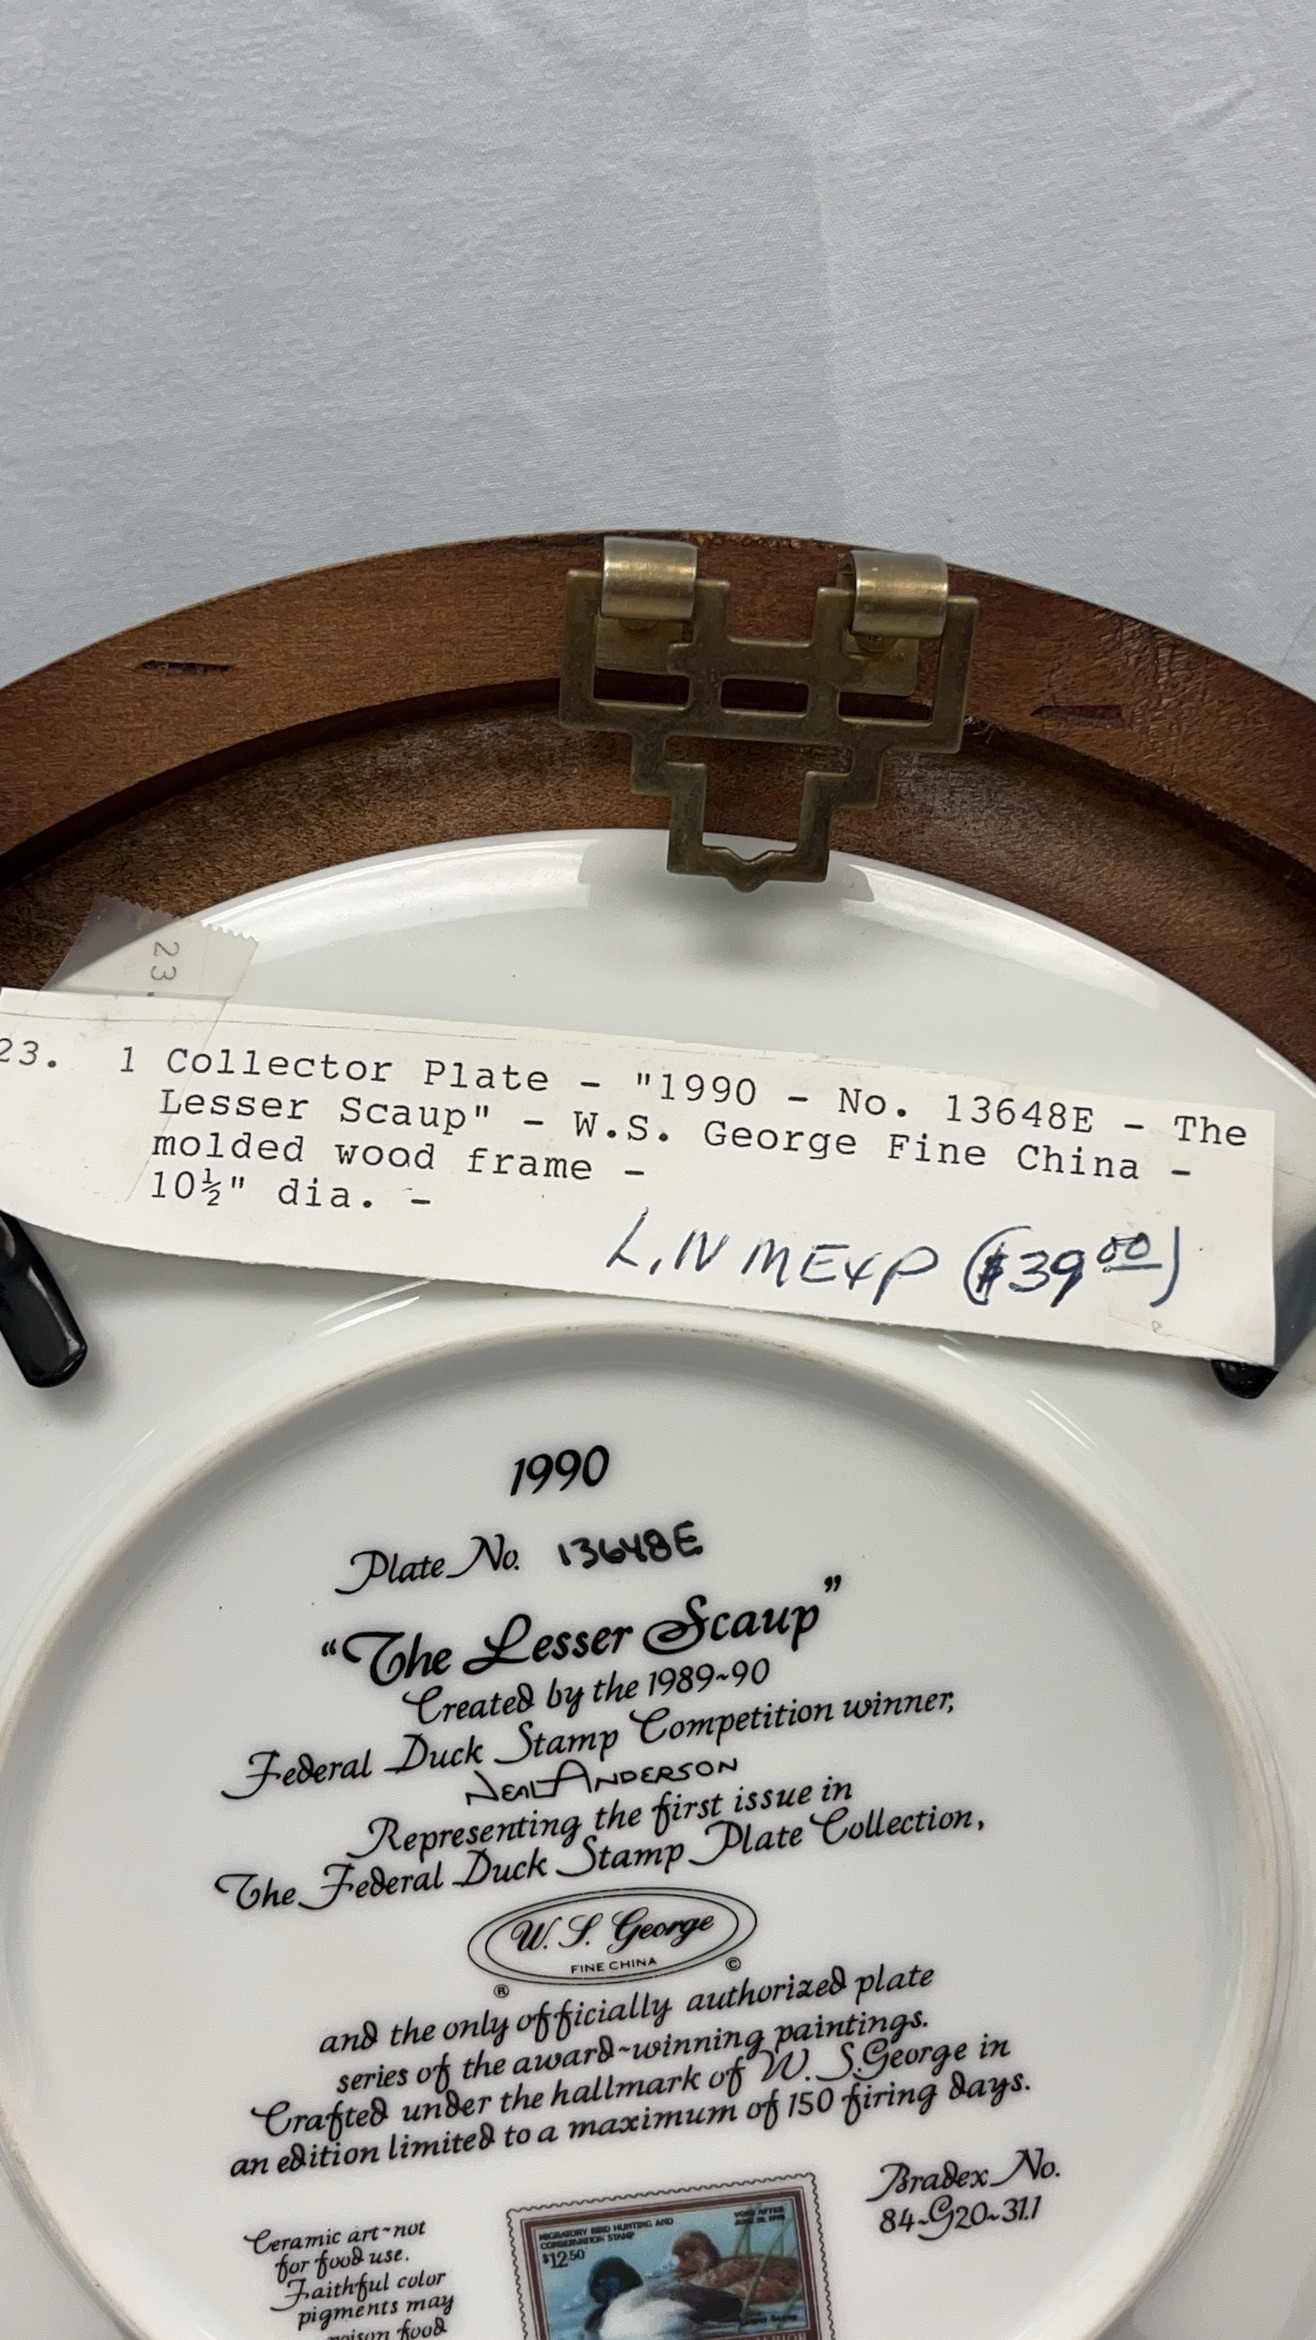 23.
23. 1 Collector Plate - "1990 - No. 13648E - The
Lesser Scaup" - W.S. George Fine China -
molded wood frame -
10½" dia. -
($39.00)
1990
Plate No. 13648E
"The Lesser Scaup"
Created by the 1989~90
Federal Duck Stamp Competition winner,
Neal Anderson
Representing the first issue in
The Federal Duck Stamp Plate Collection,
W. S. George
FINE CHINA
® ©
and the only officially authorized plate
series of the award~winning paintings.
Crafted under the hallmark of W. S. George in
an edition limited to a maximum of 150 firing days.
Bradex No.
84~G20~31.1
Ceramic art~not
for food use.
Faithful color
pigments may
poison food
MIGRATORY BIRD HUNTING AND
CONSERVATION STAMP
$12.50
VOID AFTER